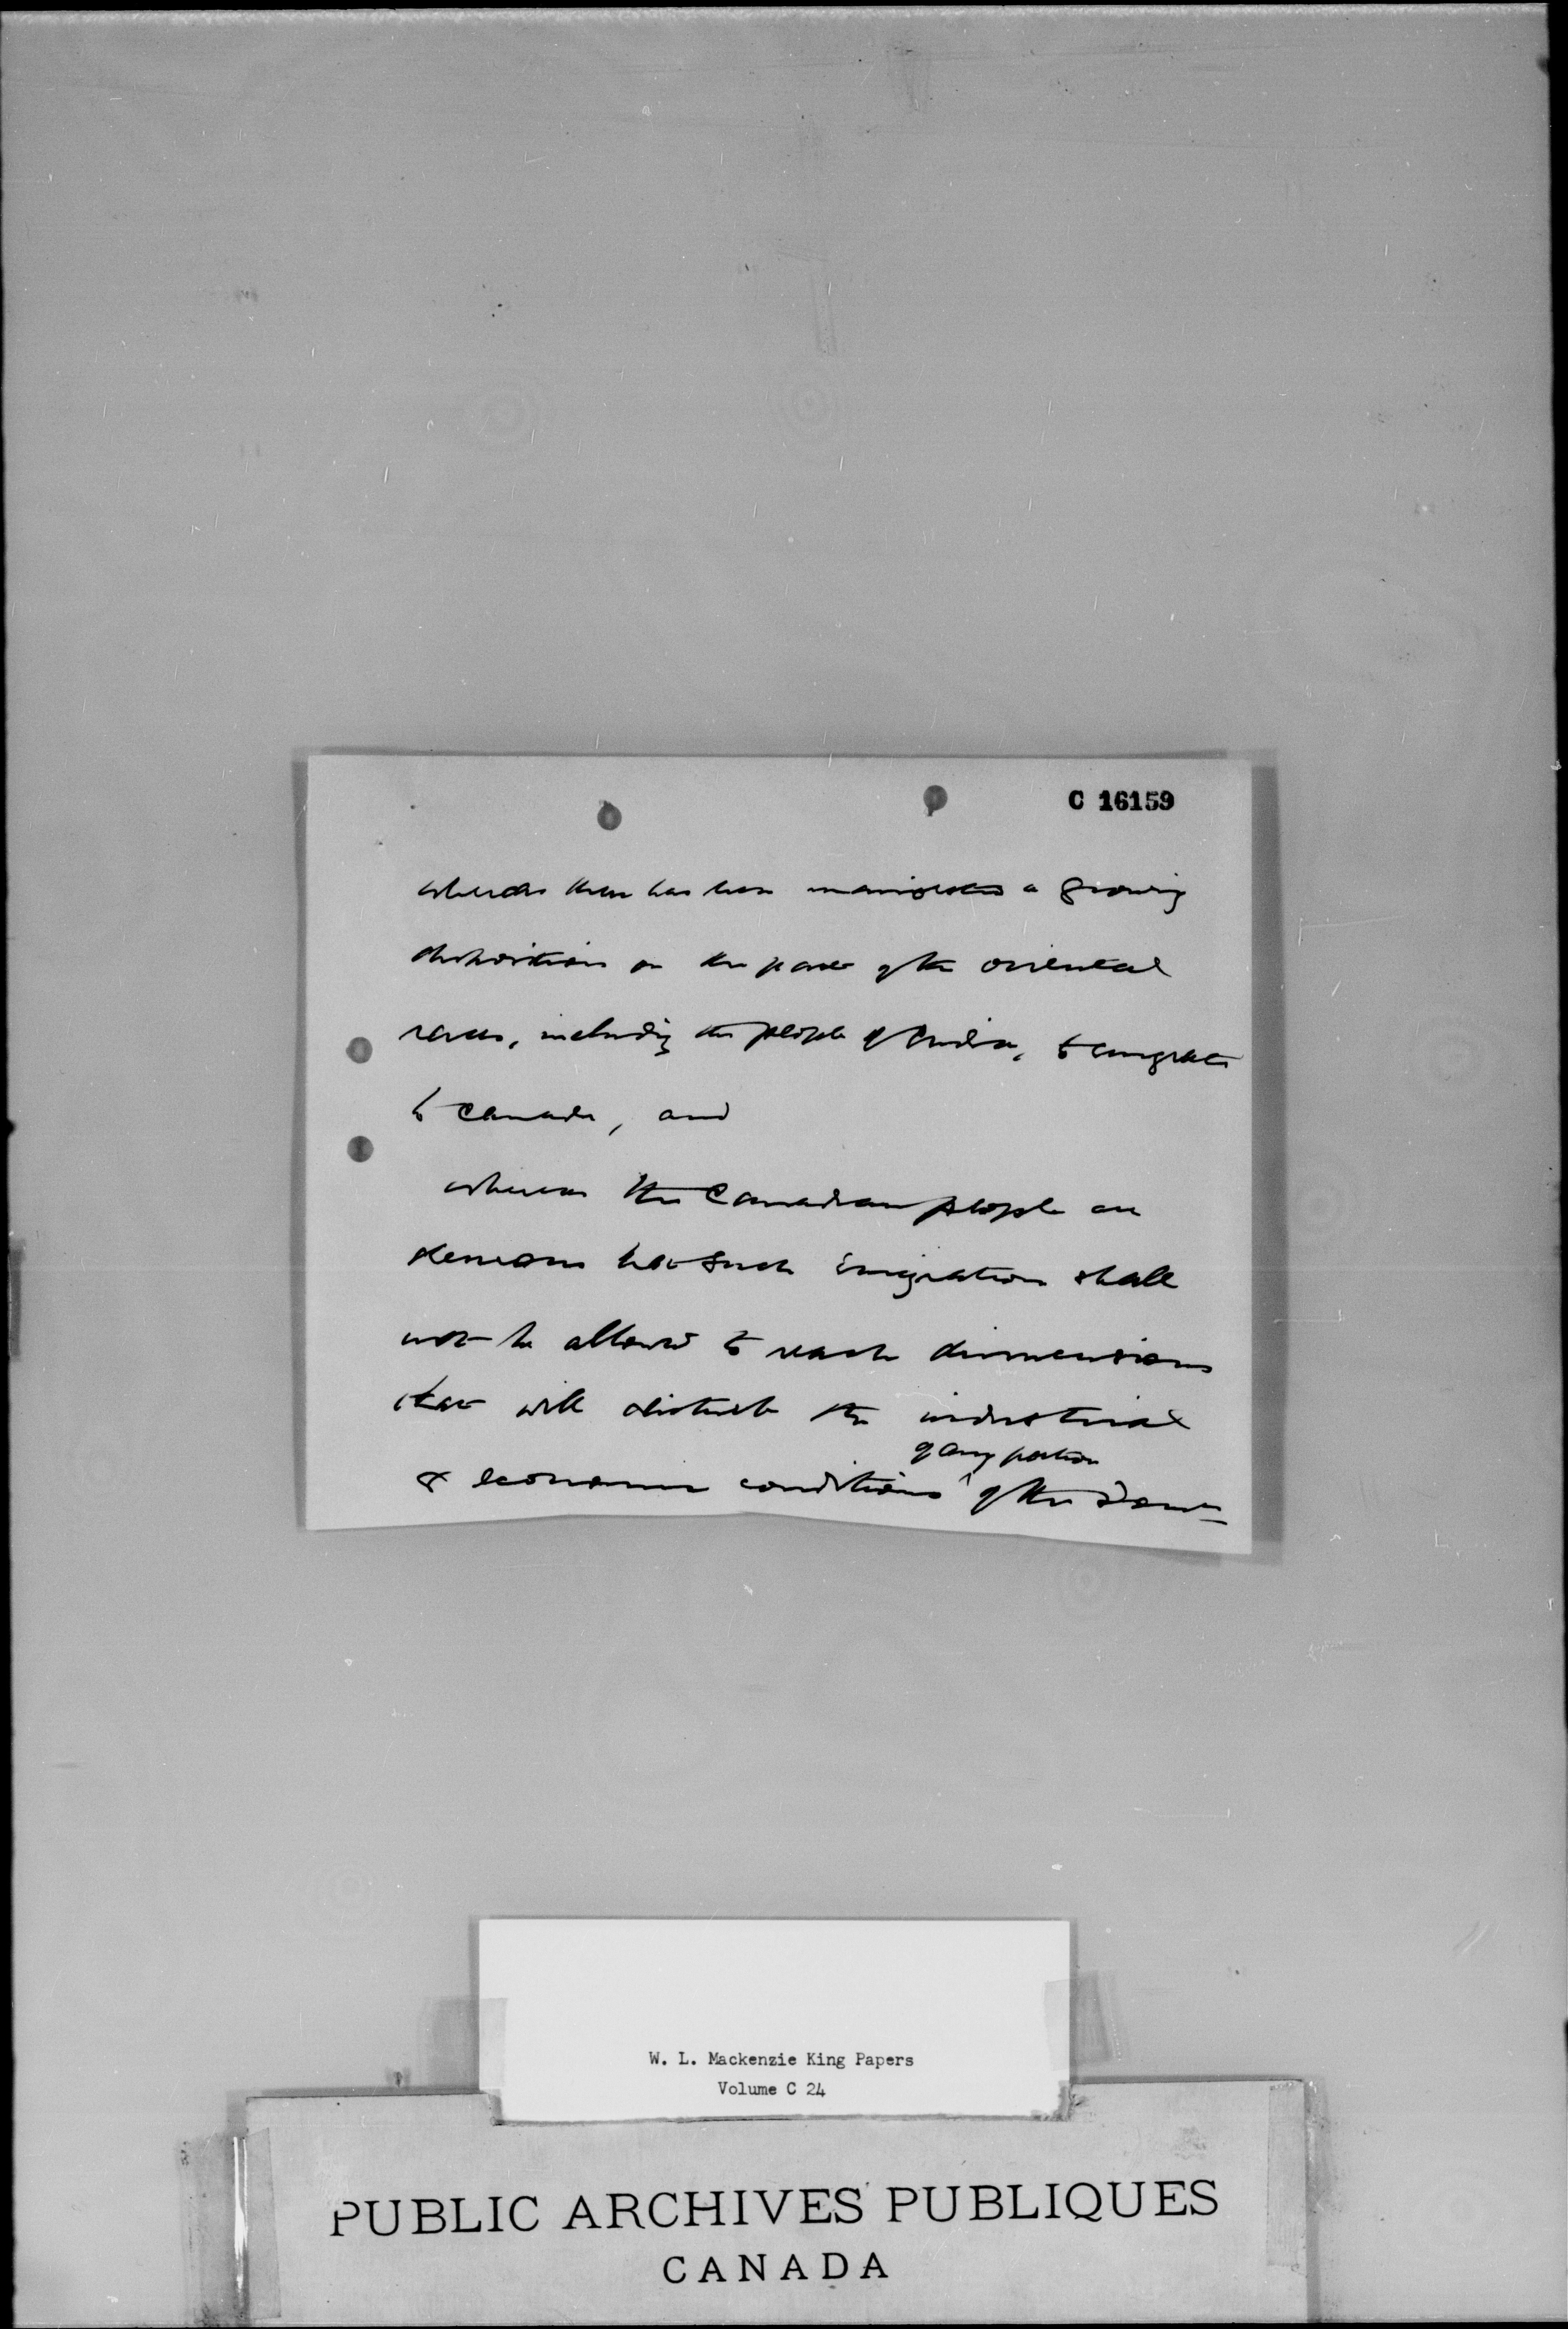 C 16159
whereas there has been manifested a growing
disposition on the part of the oriental
races, including the people of India, to emigrate
to Canada, and
whereas the Canadian people are
desirous that such immigration shall
not be allowed to reach dimensions
that will disturb the industrial
of any portion
& economic conditions ^ of the Domin
W. L. Mackenzie King Papers
Volume C 24
PUBLIC ARCHIVES PUBLIQUES
CANADA